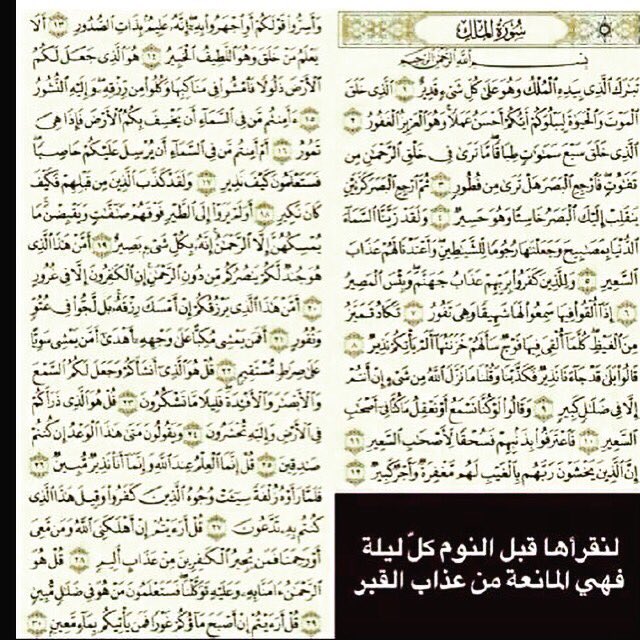 سُورَةُ المُلْكِ
بِسْمِ اللَّهِ الرَّحْمَٰنِ الرَّحِيمِ
تَبَٰرَكَ الَّذِي بِيَدِهِ الْمُلْكُ وَهُوَ عَلَىٰ كُلِّ شَيْءٍ قَدِيرٌ ١ الَّذِي خَلَقَ
الْمَوْتَ وَالْحَيَوٰةَ لِيَبْلُوَكُمْ أَيُّكُمْ أَحْسَنُ عَمَلًا وَهُوَ الْعَزِيزُ الْغَفُورُ ٢
الَّذِي خَلَقَ سَبْعَ سَمَٰوَٰتٍ طِبَاقًا مَّا تَرَىٰ فِي خَلْقِ الرَّحْمَٰنِ مِن
تَفَٰوُتٍ فَارْجِعِ الْبَصَرَ هَلْ تَرَىٰ مِن فُطُورٍ ٣ ثُمَّ ارْجِعِ الْبَصَرَ كَرَّتَيْنِ
يَنقَلِبْ إِلَيْكَ الْبَصَرُ خَاسِئًا وَهُوَ حَسِيرٌ ٤ وَلَقَدْ زَيَّنَّا السَّمَاءَ
الدُّنْيَا بِمَصَٰبِيحَ وَجَعَلْنَٰهَا رُجُومًا لِّلشَّيَٰطِينِ وَأَعْتَدْنَا لَهُمْ عَذَابَ
السَّعِيرِ ٥ وَلِلَّذِينَ كَفَرُوا بِرَبِّهِمْ عَذَابُ جَهَنَّمَ وَبِئْسَ الْمَصِيرُ
٦ إِذَا أُلْقُوا فِيهَا سَمِعُوا لَهَا شَهِيقًا وَهِيَ تَفُورُ ٧ تَكَادُ تَمَيَّزُ
مِنَ الْغَيْظِ كُلَّمَا أُلْقِيَ فِيهَا فَوْجٌ سَأَلَهُمْ خَزَنَتُهَا أَلَمْ يَأْتِكُمْ نَذِيرٌ ٨
قَالُوا بَلَىٰ قَدْ جَاءَنَا نَذِيرٌ فَكَذَّبْنَا وَقُلْنَا مَا نَزَّلَ اللَّهُ مِن شَيْءٍ إِنْ أَنتُمْ
إِلَّا فِي ضَلَٰلٍ كَبِيرٍ ٩ وَقَالُوا لَوْ كُنَّا نَسْمَعُ أَوْ نَعْقِلُ مَا كُنَّا فِي أَصْحَٰبِ
السَّعِيرِ ١٠ فَاعْتَرَفُوا بِذَنبِهِمْ فَسُحْقًا لِّأَصْحَٰبِ السَّعِيرِ ١١
إِنَّ الَّذِينَ يَخْشَوْنَ رَبَّهُم بِالْغَيْبِ لَهُم مَّغْفِرَةٌ وَأَجْرٌ كَبِيرٌ ١٢
وَأَسِرُّوا قَوْلَكُمْ أَوِ اجْهَرُوا بِهِ إِنَّهُ عَلِيمٌ بِذَاتِ الصُّدُورِ ١٣ أَلَا
يَعْلَمُ مَنْ خَلَقَ وَهُوَ اللَّطِيفُ الْخَبِيرُ ١٤ هُوَ الَّذِي جَعَلَ لَكُمُ
الْأَرْضَ ذَلُولًا فَامْشُوا فِي مَنَاكِبِهَا وَكُلُوا مِن رِّزْقِهِ وَإِلَيْهِ النُّشُورُ
١٥ ءَأَمِنتُم مَّن فِي السَّمَاءِ أَن يَخْسِفَ بِكُمُ الْأَرْضَ فَإِذَا هِيَ
تَمُورُ ١٦ أَمْ أَمِنتُم مَّن فِي السَّمَاءِ أَن يُرْسِلَ عَلَيْكُمْ حَاصِبًا
فَسَتَعْلَمُونَ كَيْفَ نَذِيرِ ١٧ وَلَقَدْ كَذَّبَ الَّذِينَ مِن قَبْلِهِمْ فَكَيْفَ
كَانَ نَكِيرِ ١٨ أَوَلَمْ يَرَوْا إِلَى الطَّيْرِ فَوْقَهُمْ صَٰفَّٰتٍ وَيَقْبِضْنَ مَا
يُمْسِكُهُنَّ إِلَّا الرَّحْمَٰنُ إِنَّهُ بِكُلِّ شَيْءٍ بَصِيرٌ ١٩ أَمَّنْ هَٰذَا الَّذِي
هُوَ جُندٌ لَّكُمْ يَنصُرُكُم مِّن دُونِ الرَّحْمَٰنِ إِنِ الْكَٰفِرُونَ إِلَّا فِي غُرُورٍ
٢٠ أَمَّنْ هَٰذَا الَّذِي يَرْزُقُكُمْ إِنْ أَمْسَكَ رِزْقَهُ بَل لَّجُّوا فِي عُتُوٍّ
وَنُفُورٍ ٢١ أَفَمَن يَمْشِي مُكِبًّا عَلَىٰ وَجْهِهِ أَهْدَىٰ أَمَّن يَمْشِي سَوِيًّا
عَلَىٰ صِرَٰطٍ مُّسْتَقِيمٍ ٢٢ قُلْ هُوَ الَّذِي أَنشَأَكُمْ وَجَعَلَ لَكُمُ السَّمْعَ
وَالْأَبْصَٰرَ وَالْأَفْئِدَةَ قَلِيلًا مَّا تَشْكُرُونَ ٢٣ قُلْ هُوَ الَّذِي ذَرَأَكُمْ
فِي الْأَرْضِ وَإِلَيْهِ تُحْشَرُونَ ٢٤ وَيَقُولُونَ مَتَىٰ هَٰذَا الْوَعْدُ إِن كُنتُمْ
صَٰدِقِينَ ٢٥ قُلْ إِنَّمَا الْعِلْمُ عِندَ اللَّهِ وَإِنَّمَا أَنَا نَذِيرٌ مُّبِينٌ ٢٦
فَلَمَّا رَأَوْهُ زُلْفَةً سِيئَتْ وُجُوهُ الَّذِينَ كَفَرُوا وَقِيلَ هَٰذَا الَّذِي
كُنتُم بِهِ تَدَّعُونَ ٢٧ قُلْ أَرَءَيْتُمْ إِنْ أَهْلَكَنِيَ اللَّهُ وَمَن مَّعِيَ
أَوْ رَحِمَنَا فَمَن يُجِيرُ الْكَٰفِرِينَ مِنْ عَذَابٍ أَلِيمٍ ٢٨ قُلْ هُوَ
الرَّحْمَٰنُ ءَامَنَّا بِهِ وَعَلَيْهِ تَوَكَّلْنَا فَسَتَعْلَمُونَ مَنْ هُوَ فِي ضَلَٰلٍ مُّبِينٍ
٢٩ قُلْ أَرَءَيْتُمْ إِنْ أَصْبَحَ مَاؤُكُمْ غَوْرًا فَمَن يَأْتِيكُم بِمَاءٍ مَّعِينٍ ٣٠
لنقرأها قبل النوم كلّ ليلة
فهي المانعة من عذاب القبر